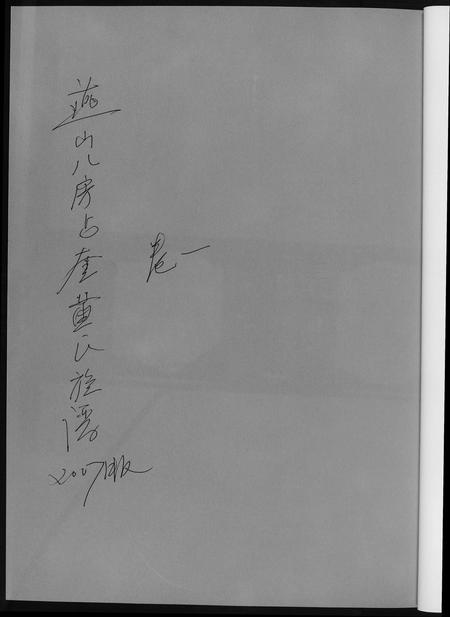 卷一
燕山八房占奎黄氏族谱
2007版